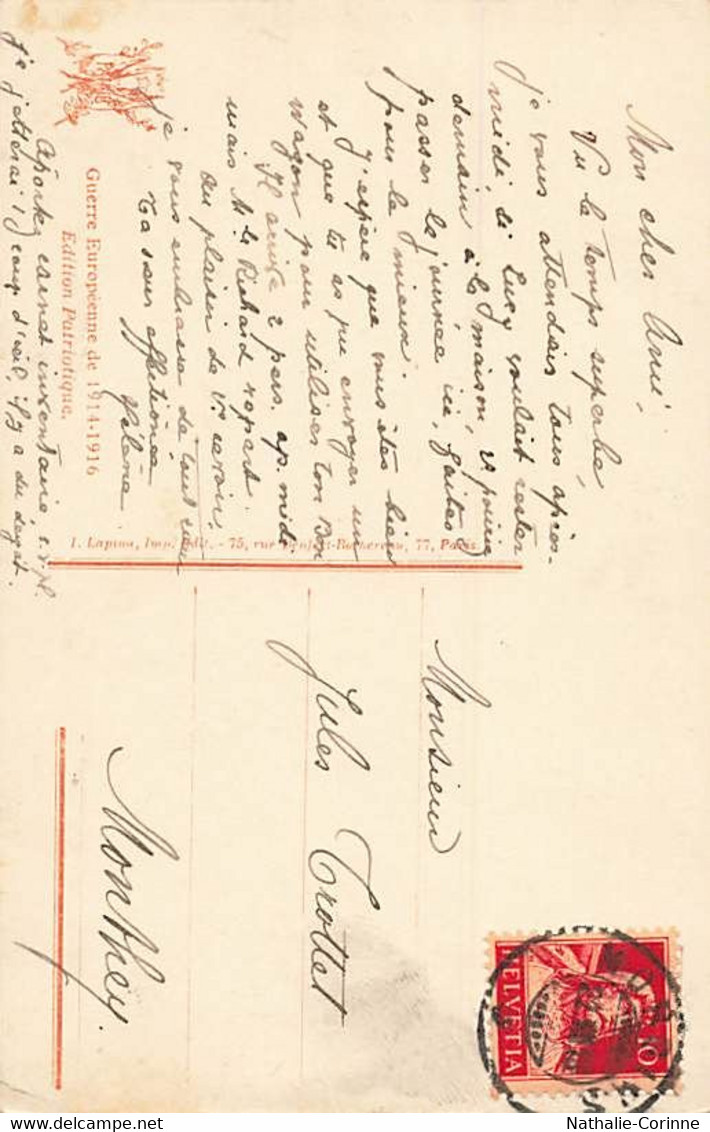 Mon cher Ami,
Vu le temps superbe,
je vous attendais tous après-
midi, si Lucy voulait rester
demain à la maison, et
passer la journée ici, faites
pour le mieux.
J'espère que vous êtes bien
et que tu as pu envoyer un
wagon pour utiliser ton Bon
Il arrive 2 pers. ap. midi
mais Mr Le Richard repart.
Au plaisir de vs revoir.
je vous embrasse de tout cœur
Ta sœur affectionnée
Hélène
Apportez carnet inventaire, s. v. pl.
je jetterai 1 coup d'œil, il y a du dégât.
Guerre Européenne de 1914-1916
Edition Patriotique.
I. Lapina, Imp. Edit. - 75, rue Denfert-Rochereau, 77, Paris.
Monsieur
Jules Trottet
Monthey.
HELVETIA
10
Nathalie-Corinne